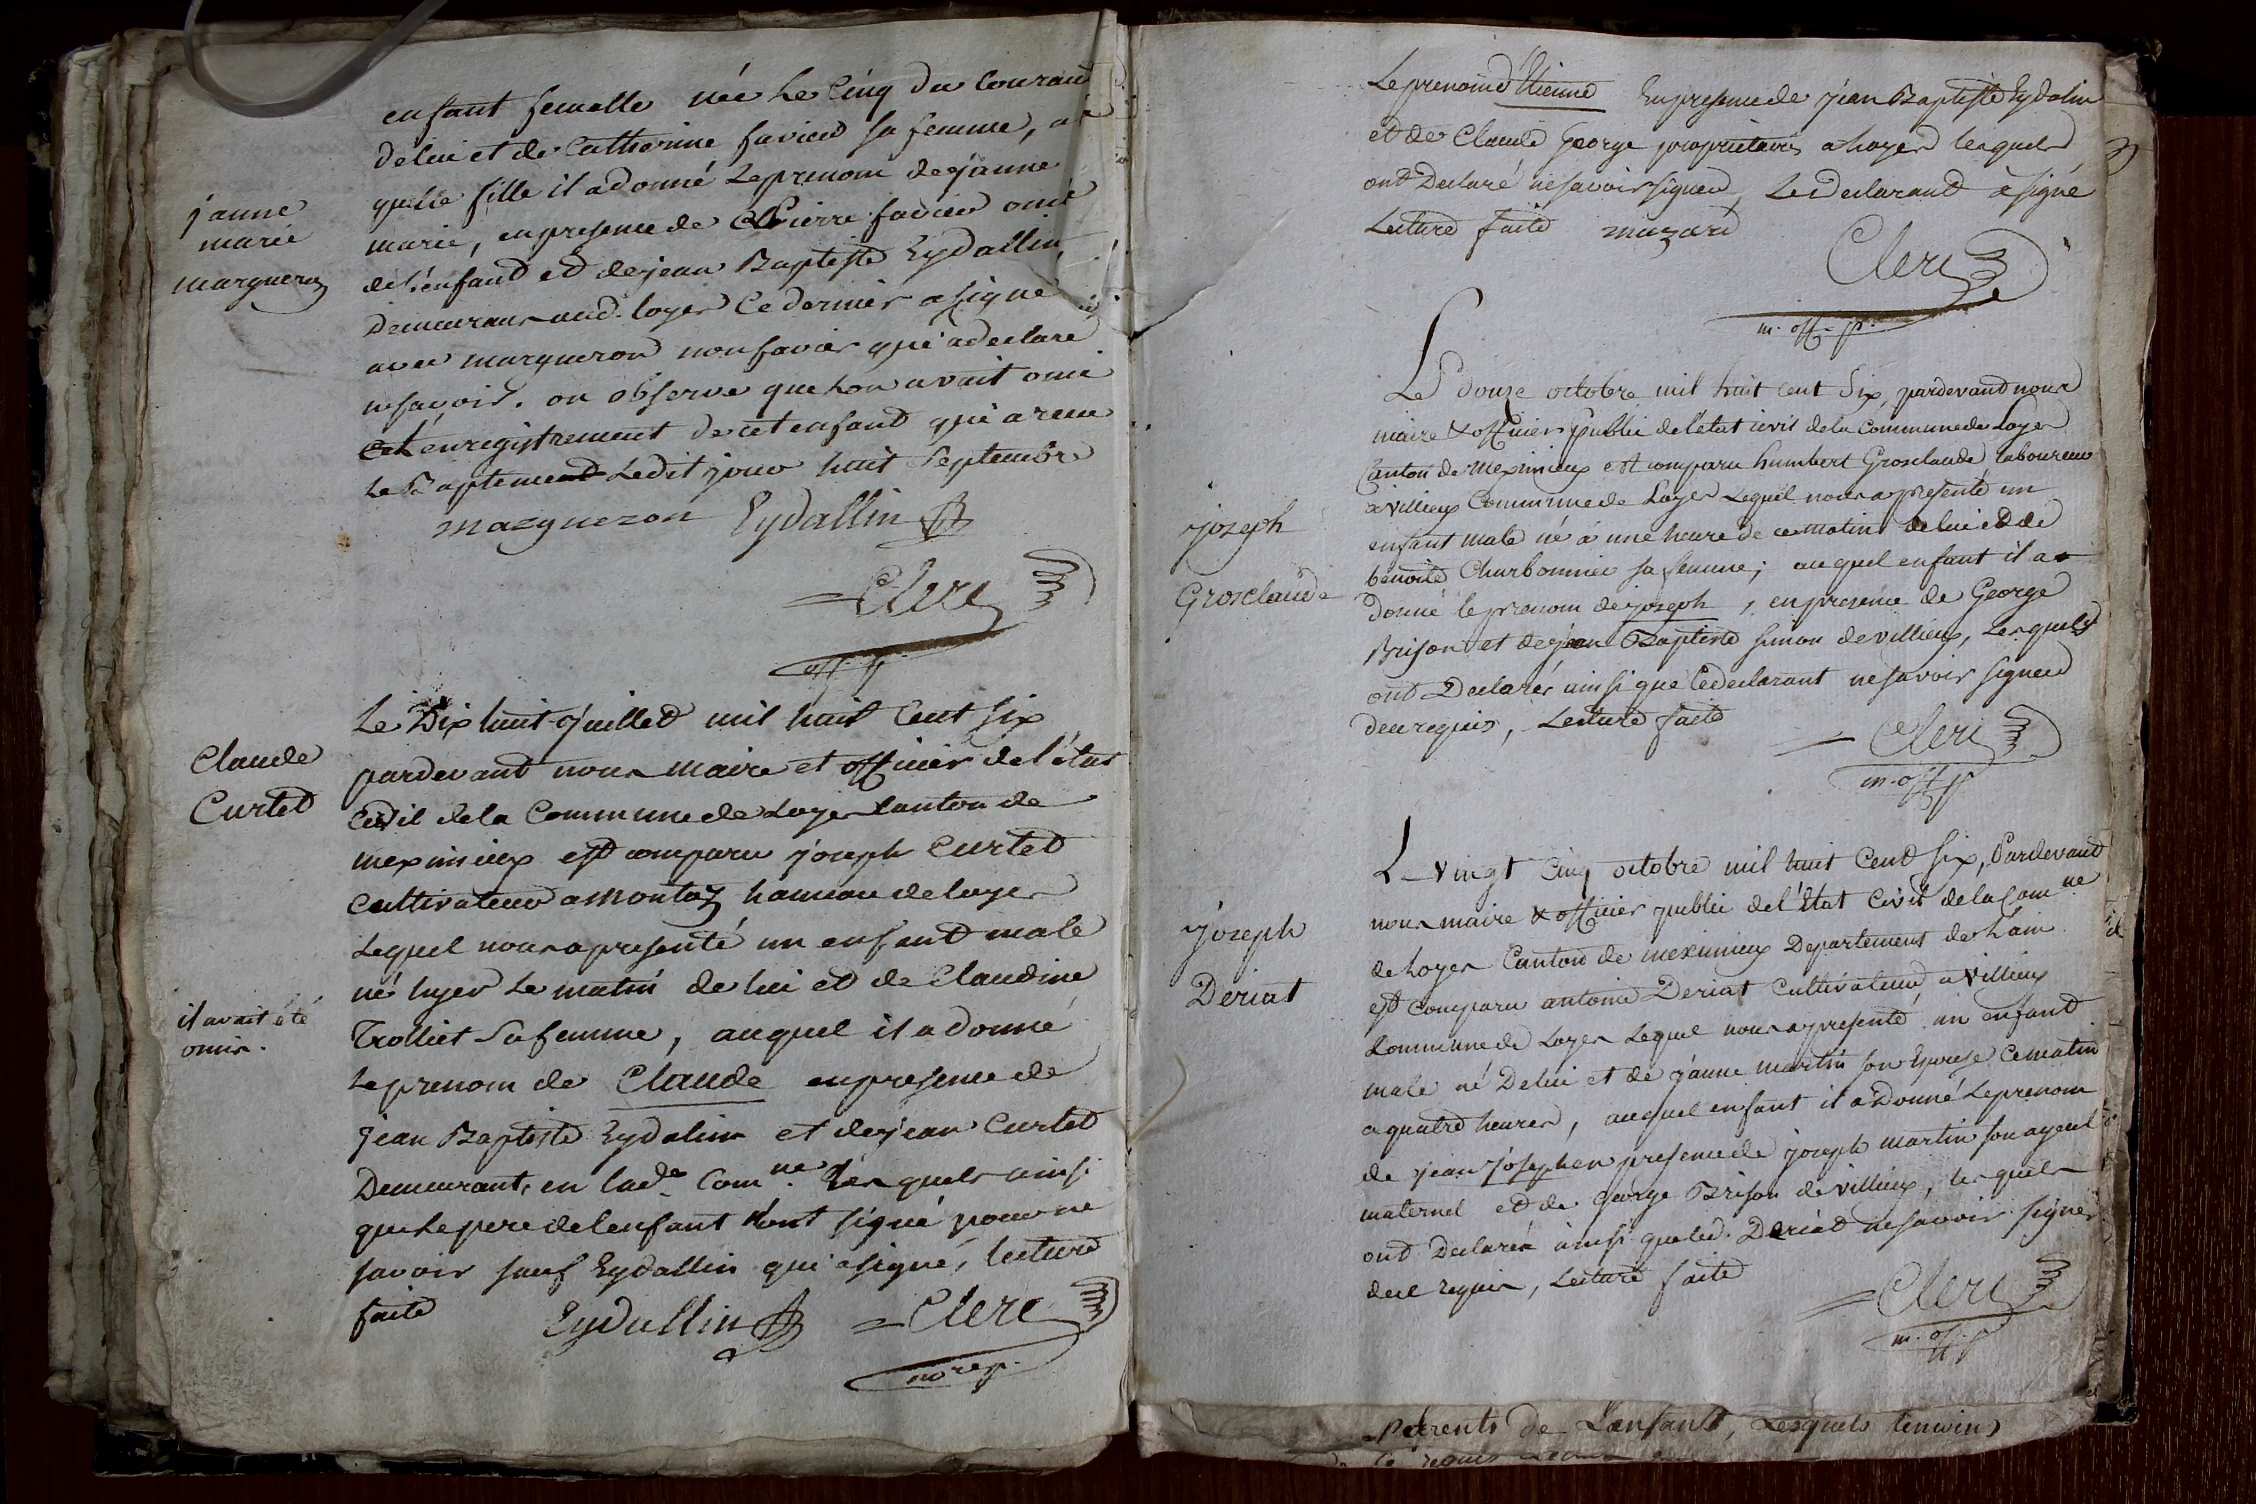 enfant femelle née Le Cinq du Courant
de lui et de Catherine favier sa femme, a la
quelle fille il a donné Le prenom de janne
marie, en presence de Pierre favier oncle
de l'enfant et de jean Baptiste Eydallin
Demeurans aud. loyes Ce dernier a signé
avec margueron non favier qui a declaré
ne savoir. on observe que Lon avait omi
cet enregistrement de cet enfant qui a recu
Le Baptême Ledit jour huit Septembre
janne
marie
margueron
margueron Eydallin
Clerc
off. p.
Le Dix huit juillet mil huit Cent Six
pardevant nous maire et officier de l'état
Civil de la Commune de Loyes Canton de
meximieux est comparu joseph Curtet
Cultivateur a Montaz hameau de loyes
Lequel nous a presenté un enfant male
né hyer Le matin de lui et de Claudine
Trolliet Sa femme, auquel il a donné
Le prenom de Claude en presence de
jean Baptiste Eydalin et de jean Curtet
Demeurant, en lad.e Com.ne Lesquels ainsi
que Le pere de lenfant n'ont signé pour ne
savoir sauf Eydallin qui a signé, lecture
faite
Claude
Curtet
il avait été
omis.
Eydallin Clerc
Le prenom d'Etienne En presence de jean Baptiste Eydalin
et de Claude George proprietaires a Loyes lesquels
ont Declaré ne savoir signer, Le declarant a signé
Lecture faite muzard
Clerc
m. off. p.
Le douze octobre mil huit cent Six, pardevant nous
maire & officier public de l'état civil de la Commune de Loyes
Canton de Meximieux est comparu humbert Grosclaude laboureur
a villieux Commune de Loyes Lequel nous a presenté un
enfant male né à une heure de ce matin de lui et de
benoite Charbonnier sa femme; auquel enfant il a
donné le prenom de joseph, en presence de George
Brison et de jean Baptiste simon de villieux, Lesquels
ont Declarés ainsi que Le declarant ne savoir signer
de ce requis, Lecture faite
joseph
Grosclaude
Clerc
m. off. p
Le vingt Cinq octobre mil huit Cent Six, Pardevant
nous maire & officier public de l'état Civil de la Com.ne
de Loyes Canton de meximieux Departement de Lain
est Comparu antoine Deriat Cultivateur a Villieux
Commune de Loyes Lequel nous a presenté un enfant
male né De lui et de janne martin son Epouse Ce matin
a quatre heures, auquel enfant il a Donné Le prenom
de jean joseph en presence de joseph martin son ayeul
maternel et de George Brison de villieux, lesquels
ont Declarés ainsi que led. Deriat ne savoir signer
de ce requis, Lecture faite
joseph
Deriat
Clerc
m. off. p
Parents de L'enfant, Lesquels temoins